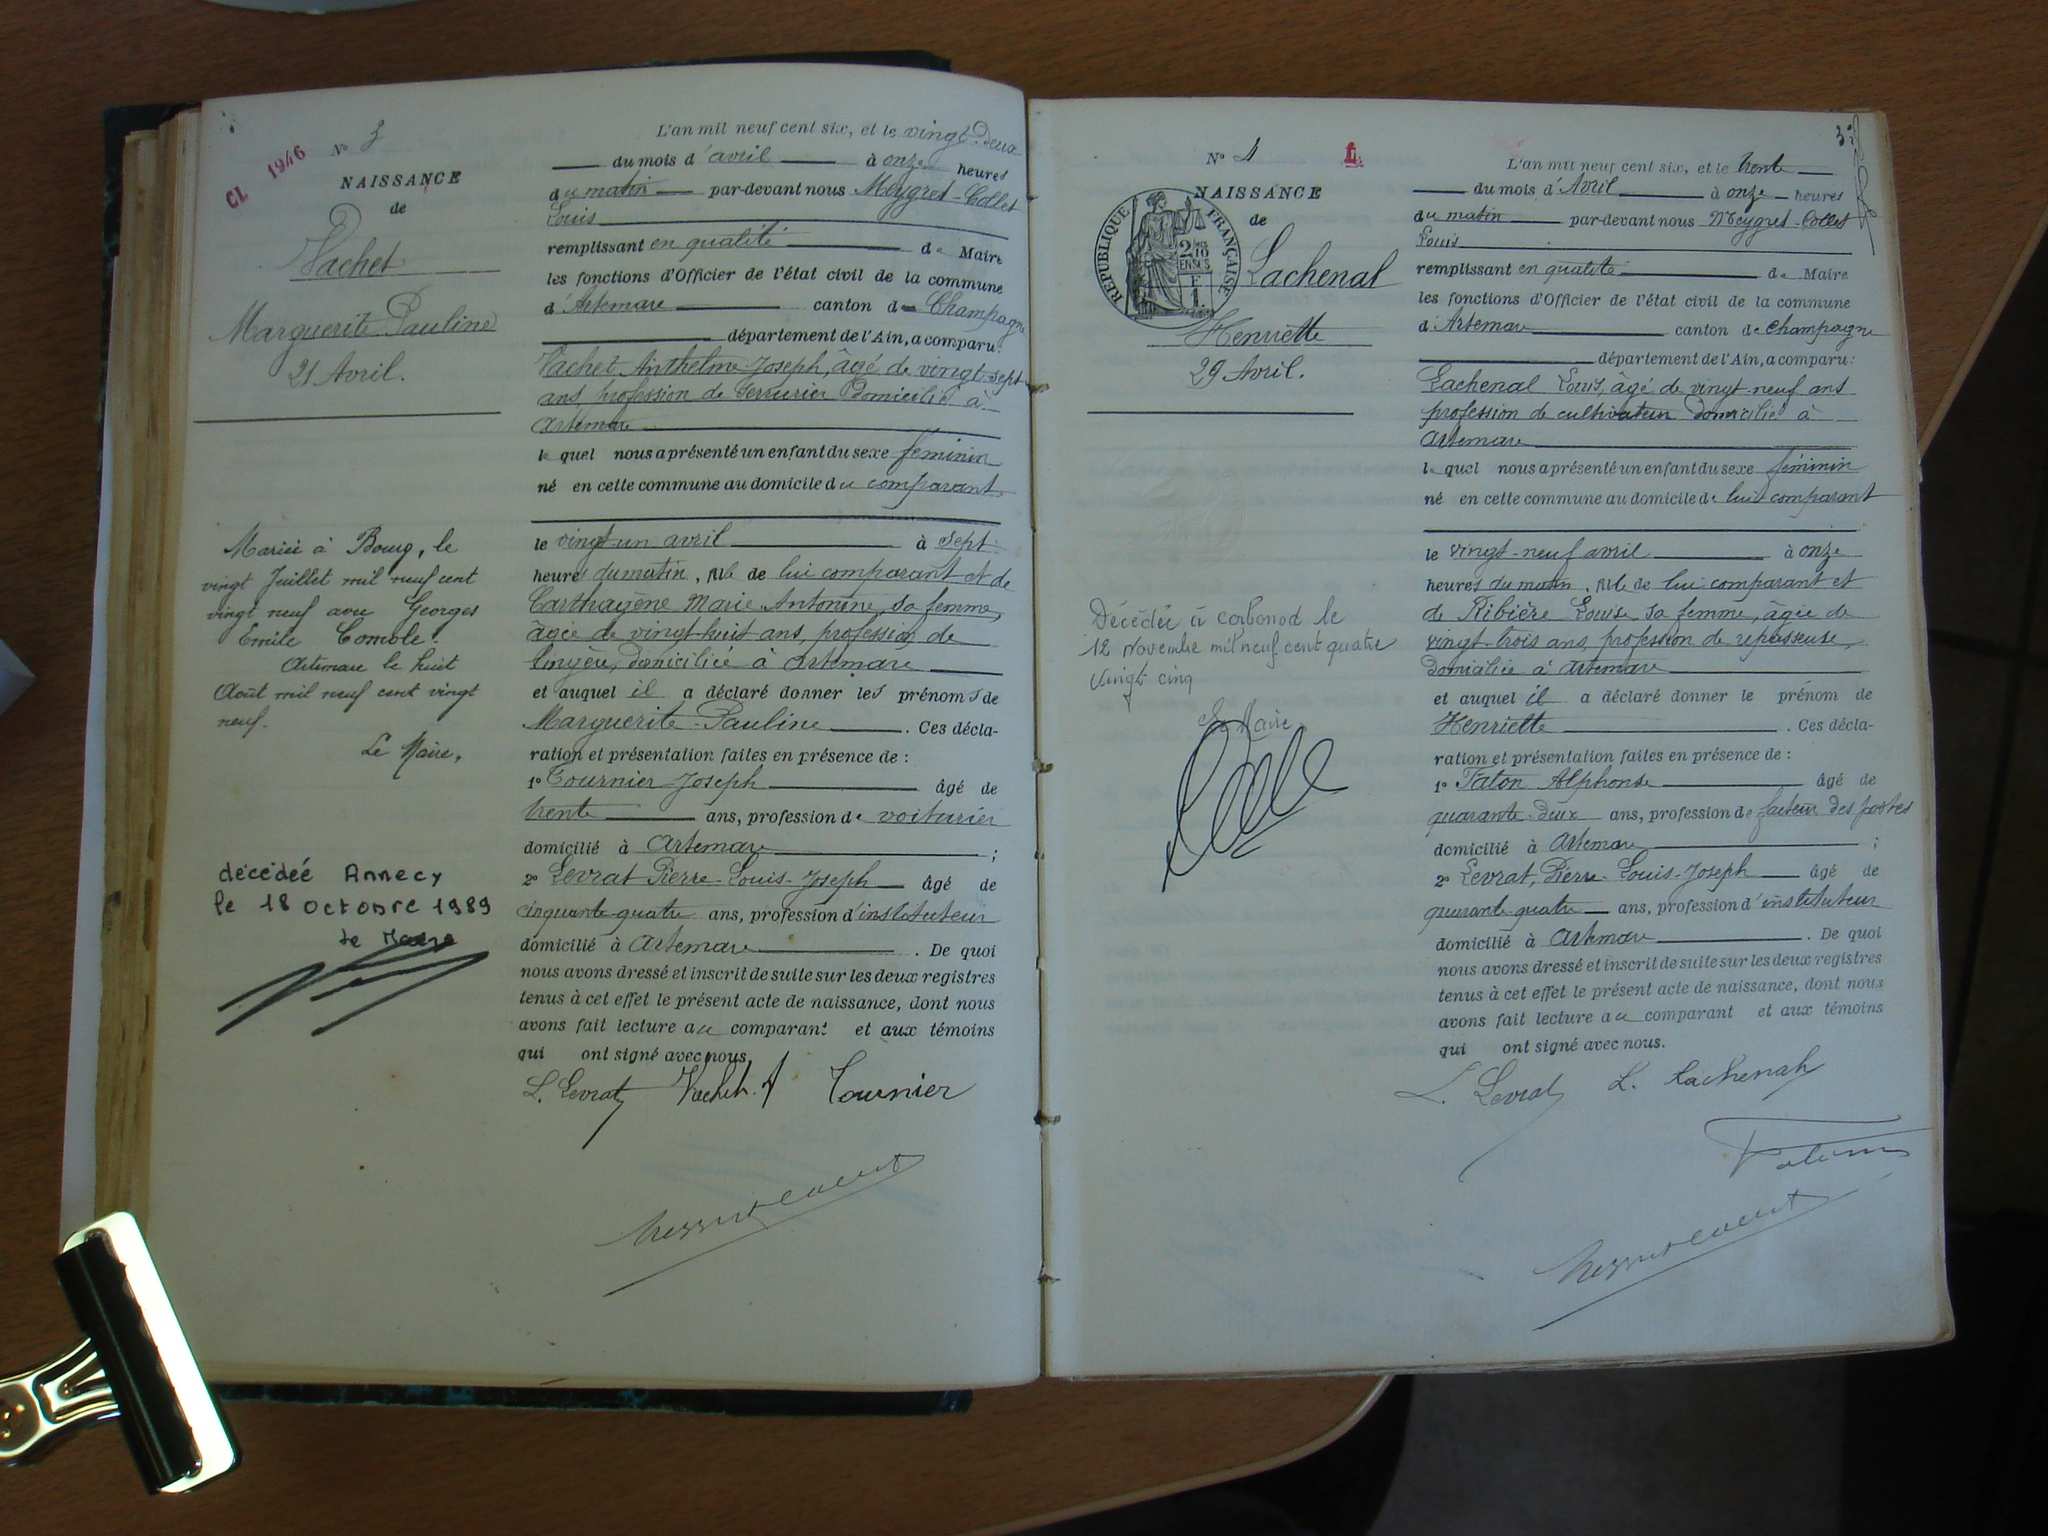 CL 1946
N° 3
NAISSANCE
de
Vachet
Marguerite Pauline
21 Avril.
Mariée à Bourg, le
vingt Juillet mil neuf cent
vingt neuf avec Georges
Emile Comole.
Artemare le huit
Août mil neuf cent vingt
neuf.
Le Maire,
décédée Annecy
le 18 octobre 1989
le Maire
L'an mil neuf cent six, et le vingt-deux
du mois d'avril à onze heures
du matin par-devant nous Meygret-Collet
Louis
remplissant en qualité de Maire
les fonctions d'Officier de l'état civil de la commune
d'Artemare canton de Champagne
département de l'Ain, a comparu:
Vachet Anthelme-Joseph, âgé de vingt-sept
ans, profession de serrurier domicilié à
Artemare
le quel nous a présenté un enfant du sexe féminin
né en cette commune au domicile du comparant
le vingt-un avril à sept
heures du matin, fille de lui comparant et de
Carthagène Marie Antonine, sa femme,
âgée de vingt-huit ans, profession de
lingère, domiciliée à Artemare
et auquel il a déclaré donner les prénoms de
Marguerite-Pauline. Ces décla-
ration et présentation faites en présence de :
1° Tournier Joseph âgé de
trente ans, profession de voiturier
domicilié à Artemare ;
2° Levrat Pierre-Louis-Joseph âgé de
cinquante-quatre ans, profession d'instituteur
domicilié à Artemare. De quoi
nous avons dressé et inscrit de suite sur les deux registres
tenus à cet effet le présent acte de naissance, dont nous
avons fait lecture au comparant et aux témoins
qui ont signé avec nous.
L. Levrat Vachet. A Tournier
Meygret Collet
3
N° 4
L.
NAISSANCE
de
REPUBLIQUE FRANÇAISE
2/10
EN SUS
F
1.
Lachenal
Henriette
29 Avril.
Décédée à Corbonod le
12 Novembre mil neuf cent quatre
vingt cinq
Le Maire
L'an mil neuf cent six, et le trente
du mois d'Avril à onze heures
du matin par-devant nous Meygret-Collet
Louis
remplissant en qualité de Maire
les fonctions d'Officier de l'état civil de la commune
d'Artemare canton de Champagne
département de l'Ain, a comparu:
Lachenal Louis, âgé de vingt-neuf ans
profession de cultivateur domicilié à
Artemare
le quel nous a présenté un enfant du sexe féminin
né en cette commune au domicile de lui comparant
le vingt-neuf avril à onze
heures du matin, fille de lui comparant et
de Ribière Louise sa femme, âgée de
vingt-trois ans, profession de repasseuse,
domiciliée à Artemare
et auquel il a déclaré donner le prénom de
Henriette. Ces décla-
ration et présentation faites en présence de :
1° Taton Alphonse âgé de
quarante-deux ans, profession de facteur des postes
domicilié à Artemare ;
2° Levrat, Pierre-Louis-Joseph âgé de
quarante-quatre ans, profession d'instituteur
domicilié à Artemare. De quoi
nous avons dressé et inscrit de suite sur les deux registres
tenus à cet effet le présent acte de naissance, dont nous
avons fait lecture au comparant et aux témoins
qui ont signé avec nous.
L. Levrat L. Lachenal
Meygret Collet